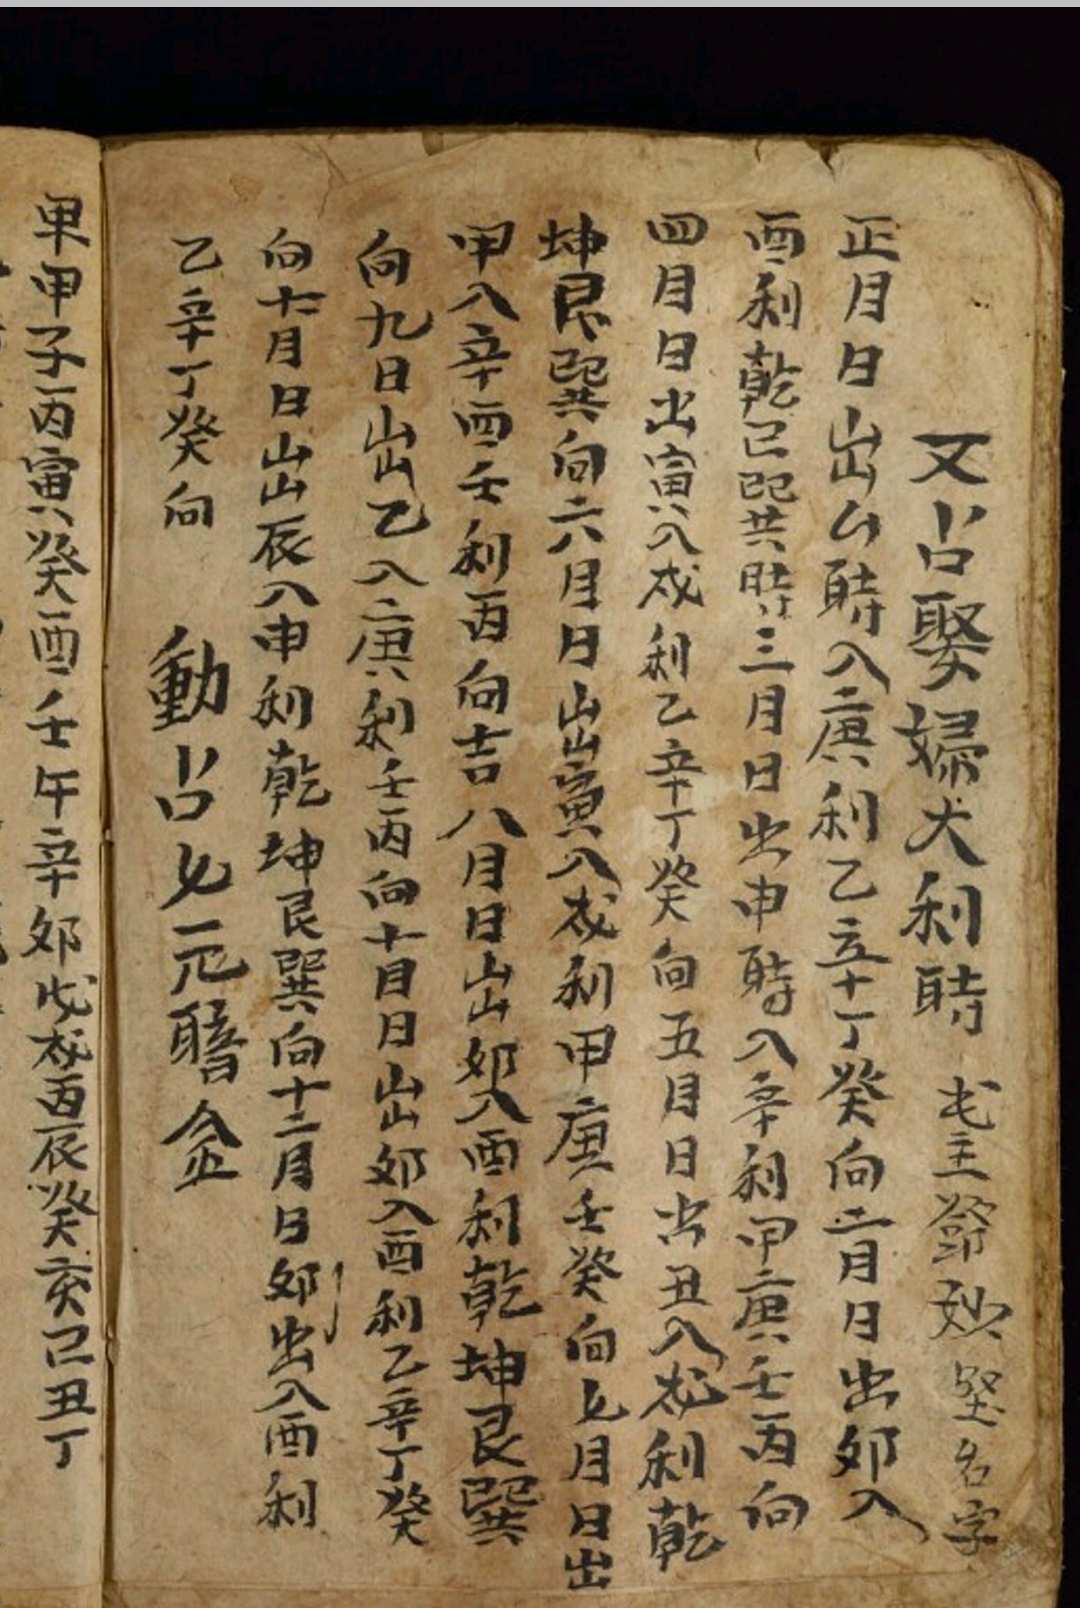 又占娶婦大利時 主鄧妙堅名字
正月日出公時入庚利乙辛丁癸向二月日出卯入
酉利乾巳巽時三月日出申時入辛利甲庚壬丙向
四月日出寅入戌利乙辛丁癸向五月日出丑入戌利乾
坤艮巽向六月日出寅入戌利甲庚壬癸向七月日出
甲入辛酉壬利丙向吉八月日出卯入酉利乾坤艮巽
向九日出乙入庚利壬丙向十月日出卯入酉利乙辛丁癸
向十一月日出辰入申利乾坤艮巽向十二月日卯出入酉利
乙辛丁癸向 動占七元 金
甲子丙寅癸酉壬午辛卯戊戌丙辰癸亥己丑丁